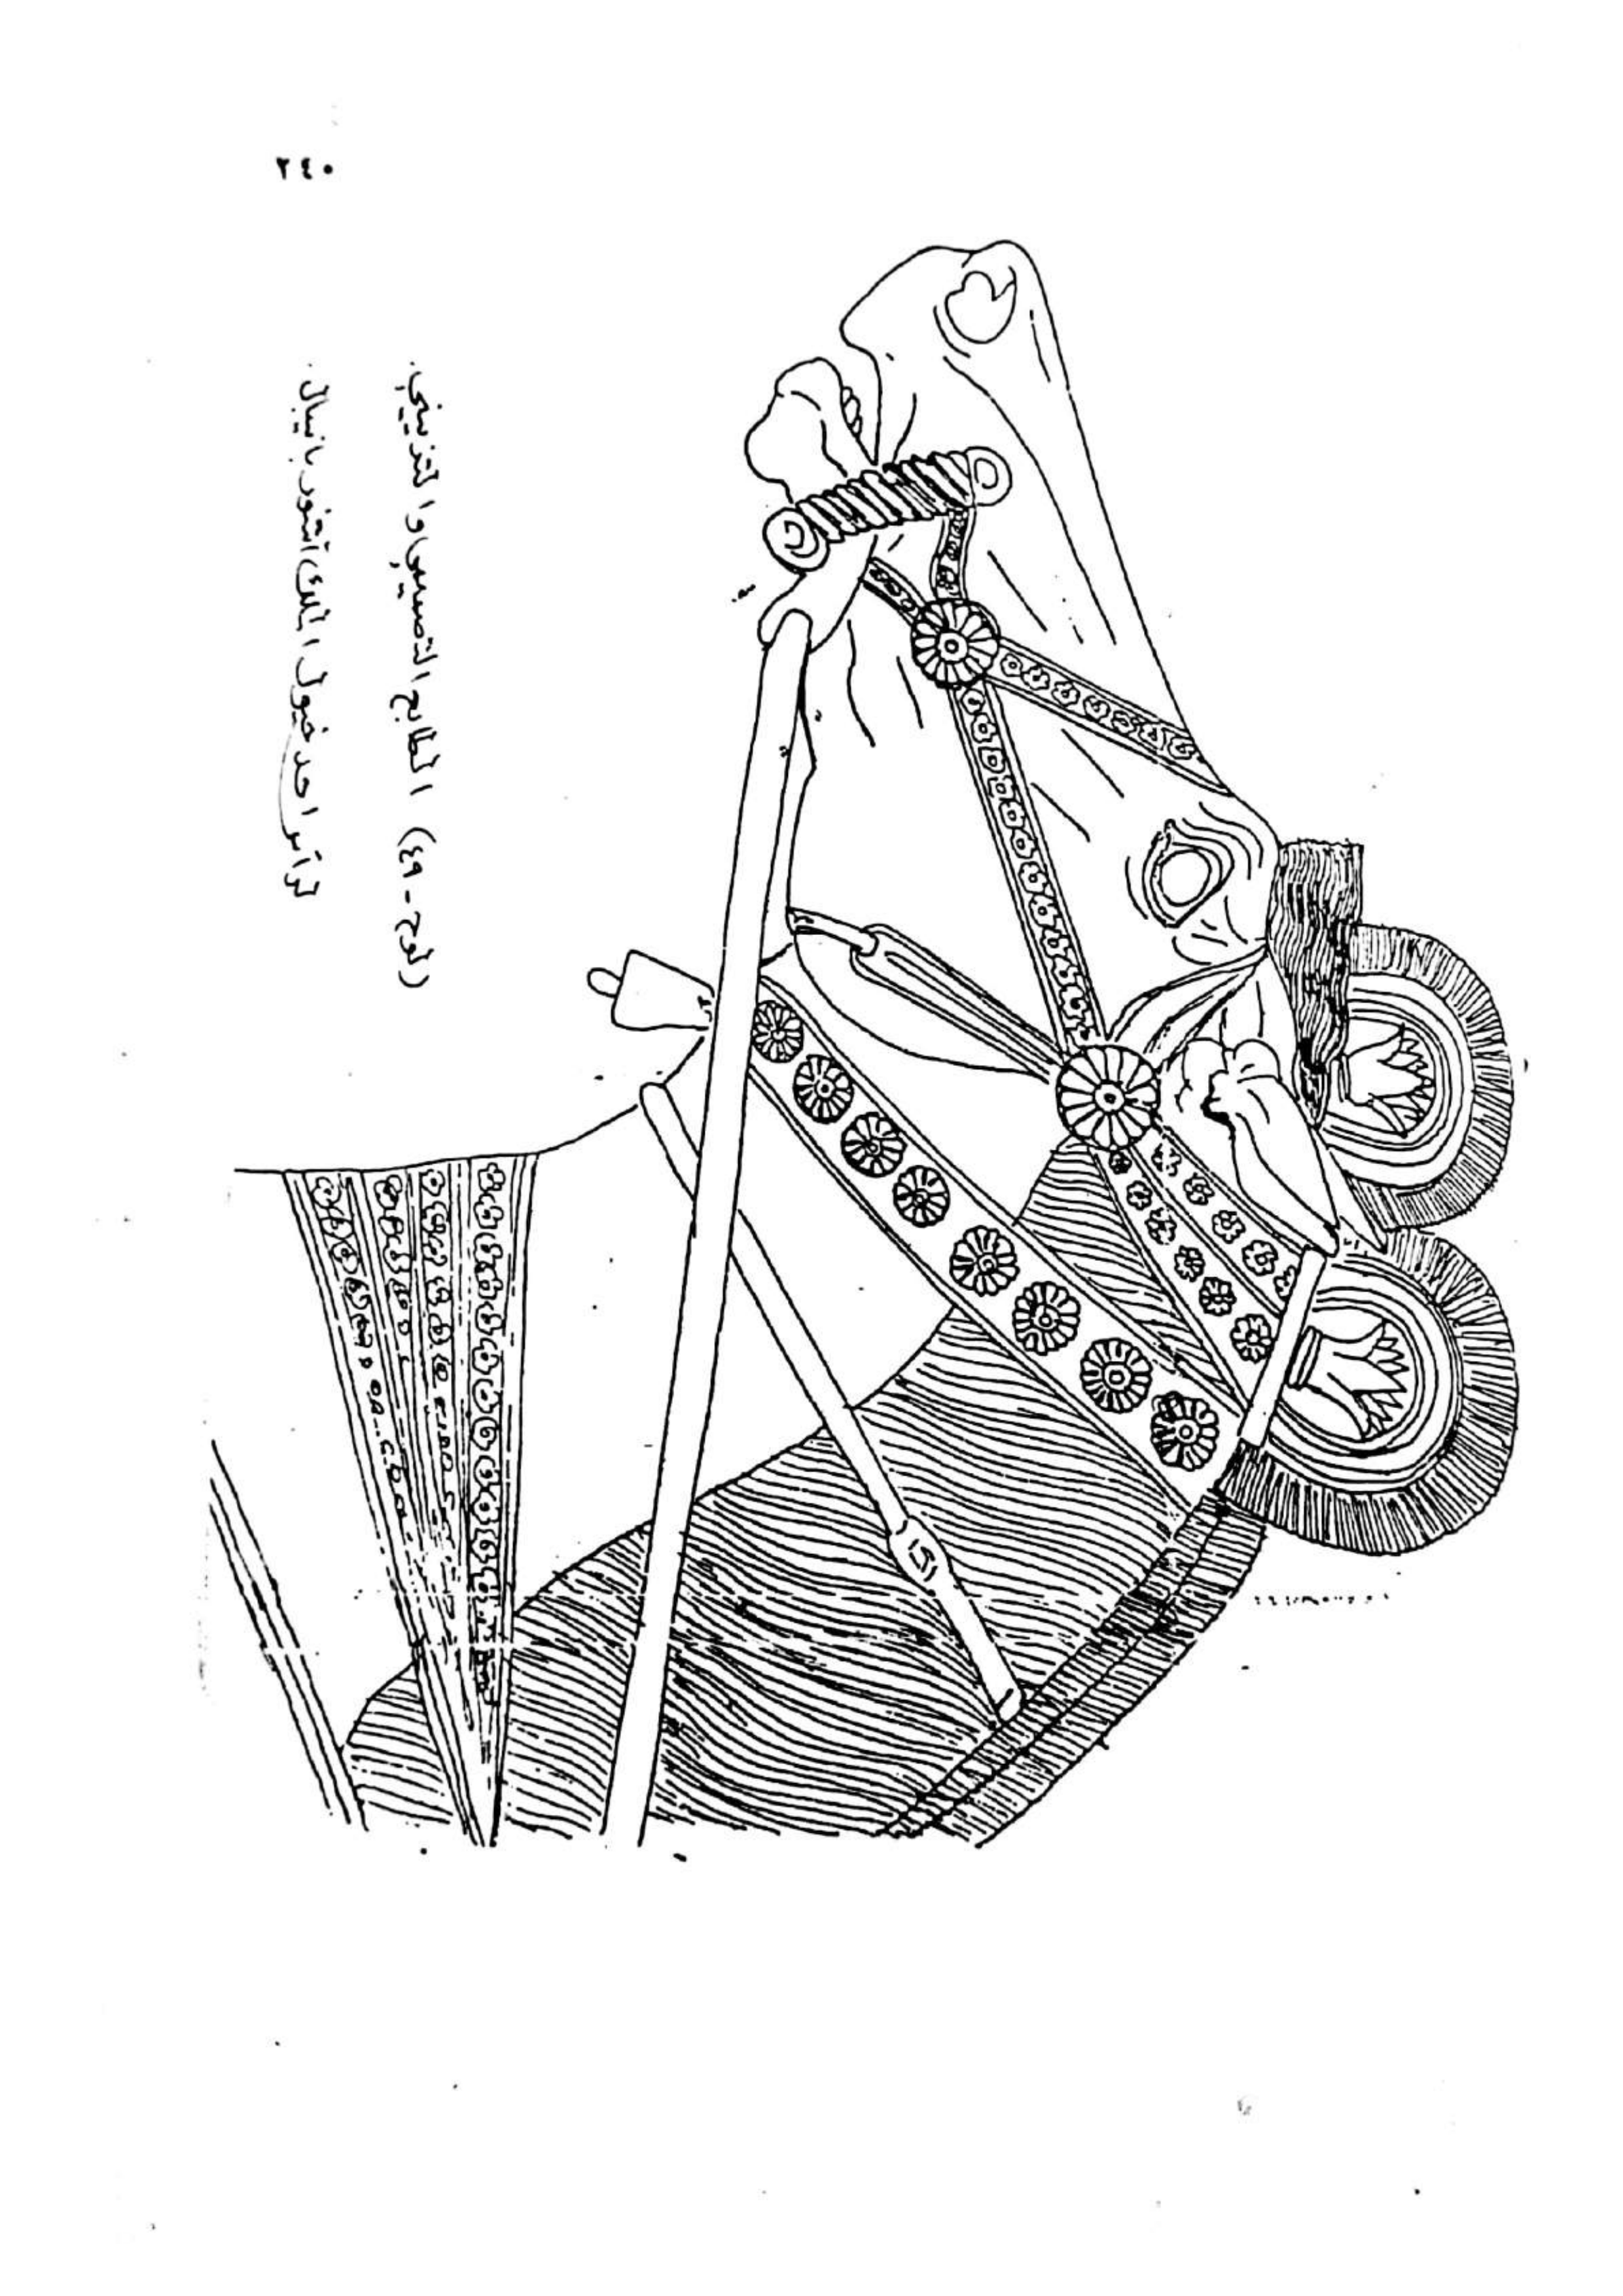 ٢٤٠
(لوح - ٤٩) الطابع التصميمي والتزييني
لرأس احد خيول الملك آشور بانيبال.